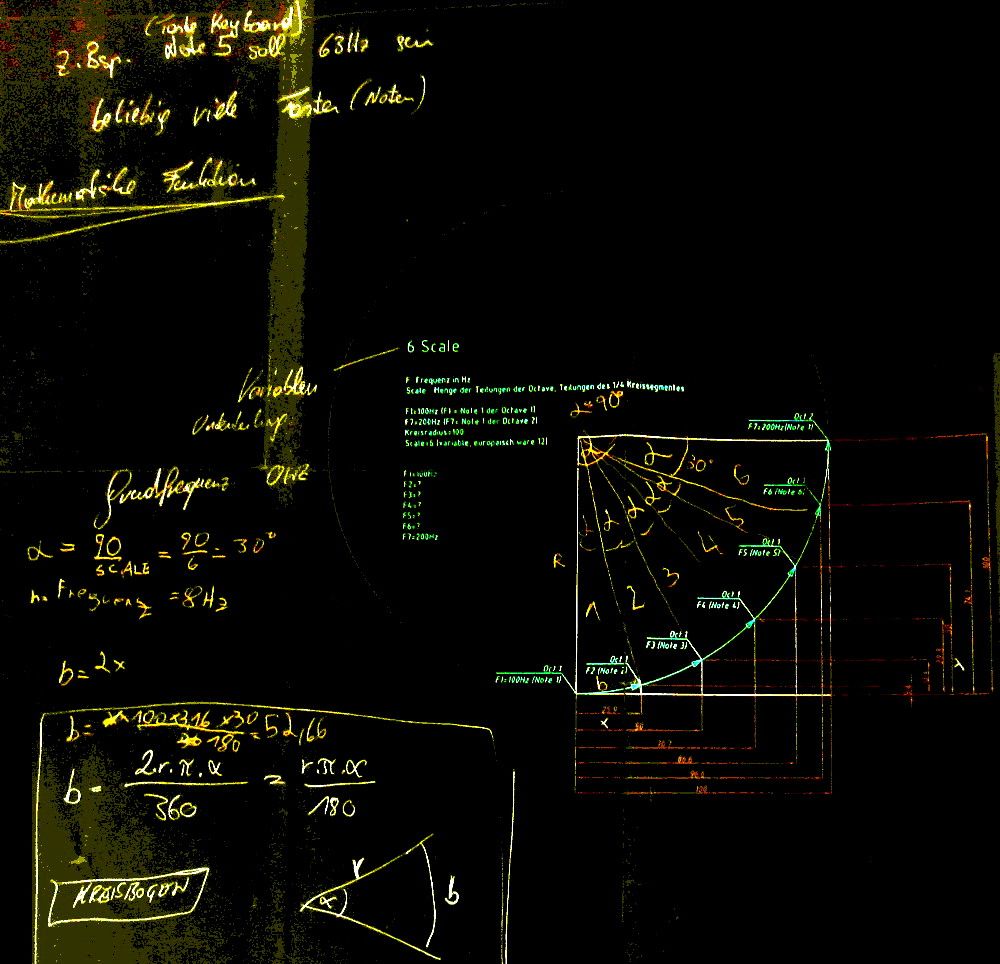 (Taste Keyboard)
z.Bsp. Note 5 soll 63Hz sein
beliebig viele Tasten (Noten)
Mathematische Funktion
6 Scale
Variablen
Unterteilung
F Frequenz in Hz
Scale Menge der Teilungen der Octave, Teilungen des 1/4 Kreissegmentes
F1=100Hz (F1 = Note 1 der Octave 1)
F7=200Hz (F7= Note 1 der Octave 2)
Kreisradius=100
Scale=6 (variable, europäisch wäre 12)
F1=100Hz
F2=?
F3=?
F4=?
F5=?
F6=?
F7=200Hz
α=90°
Oct.2
F7=200Hz(Note 1)
α
30°
6
Oct.1
F6 (Note 6)
α α α α
5
Oct.1
F5 (Note 5)
4
R
3
Oct.1
F4 (Note 4)
2
1
Oct.1
F3 (Note 3)
Oct.1
F2 (Note 2)
Oct.1
F1=100Hz (Note 1)
b
x
25.9
50
70.7
86.6
96.6
100
Grundfrequenz
α = 90/SCALE = 90/6 = 30°
Frequenz = 8Hz
b= 2x
b= 100×3,16×30/180=52,66
b = 2.r.π.α/360 = r.π.α/180
KREISBOGEN
r
α
b